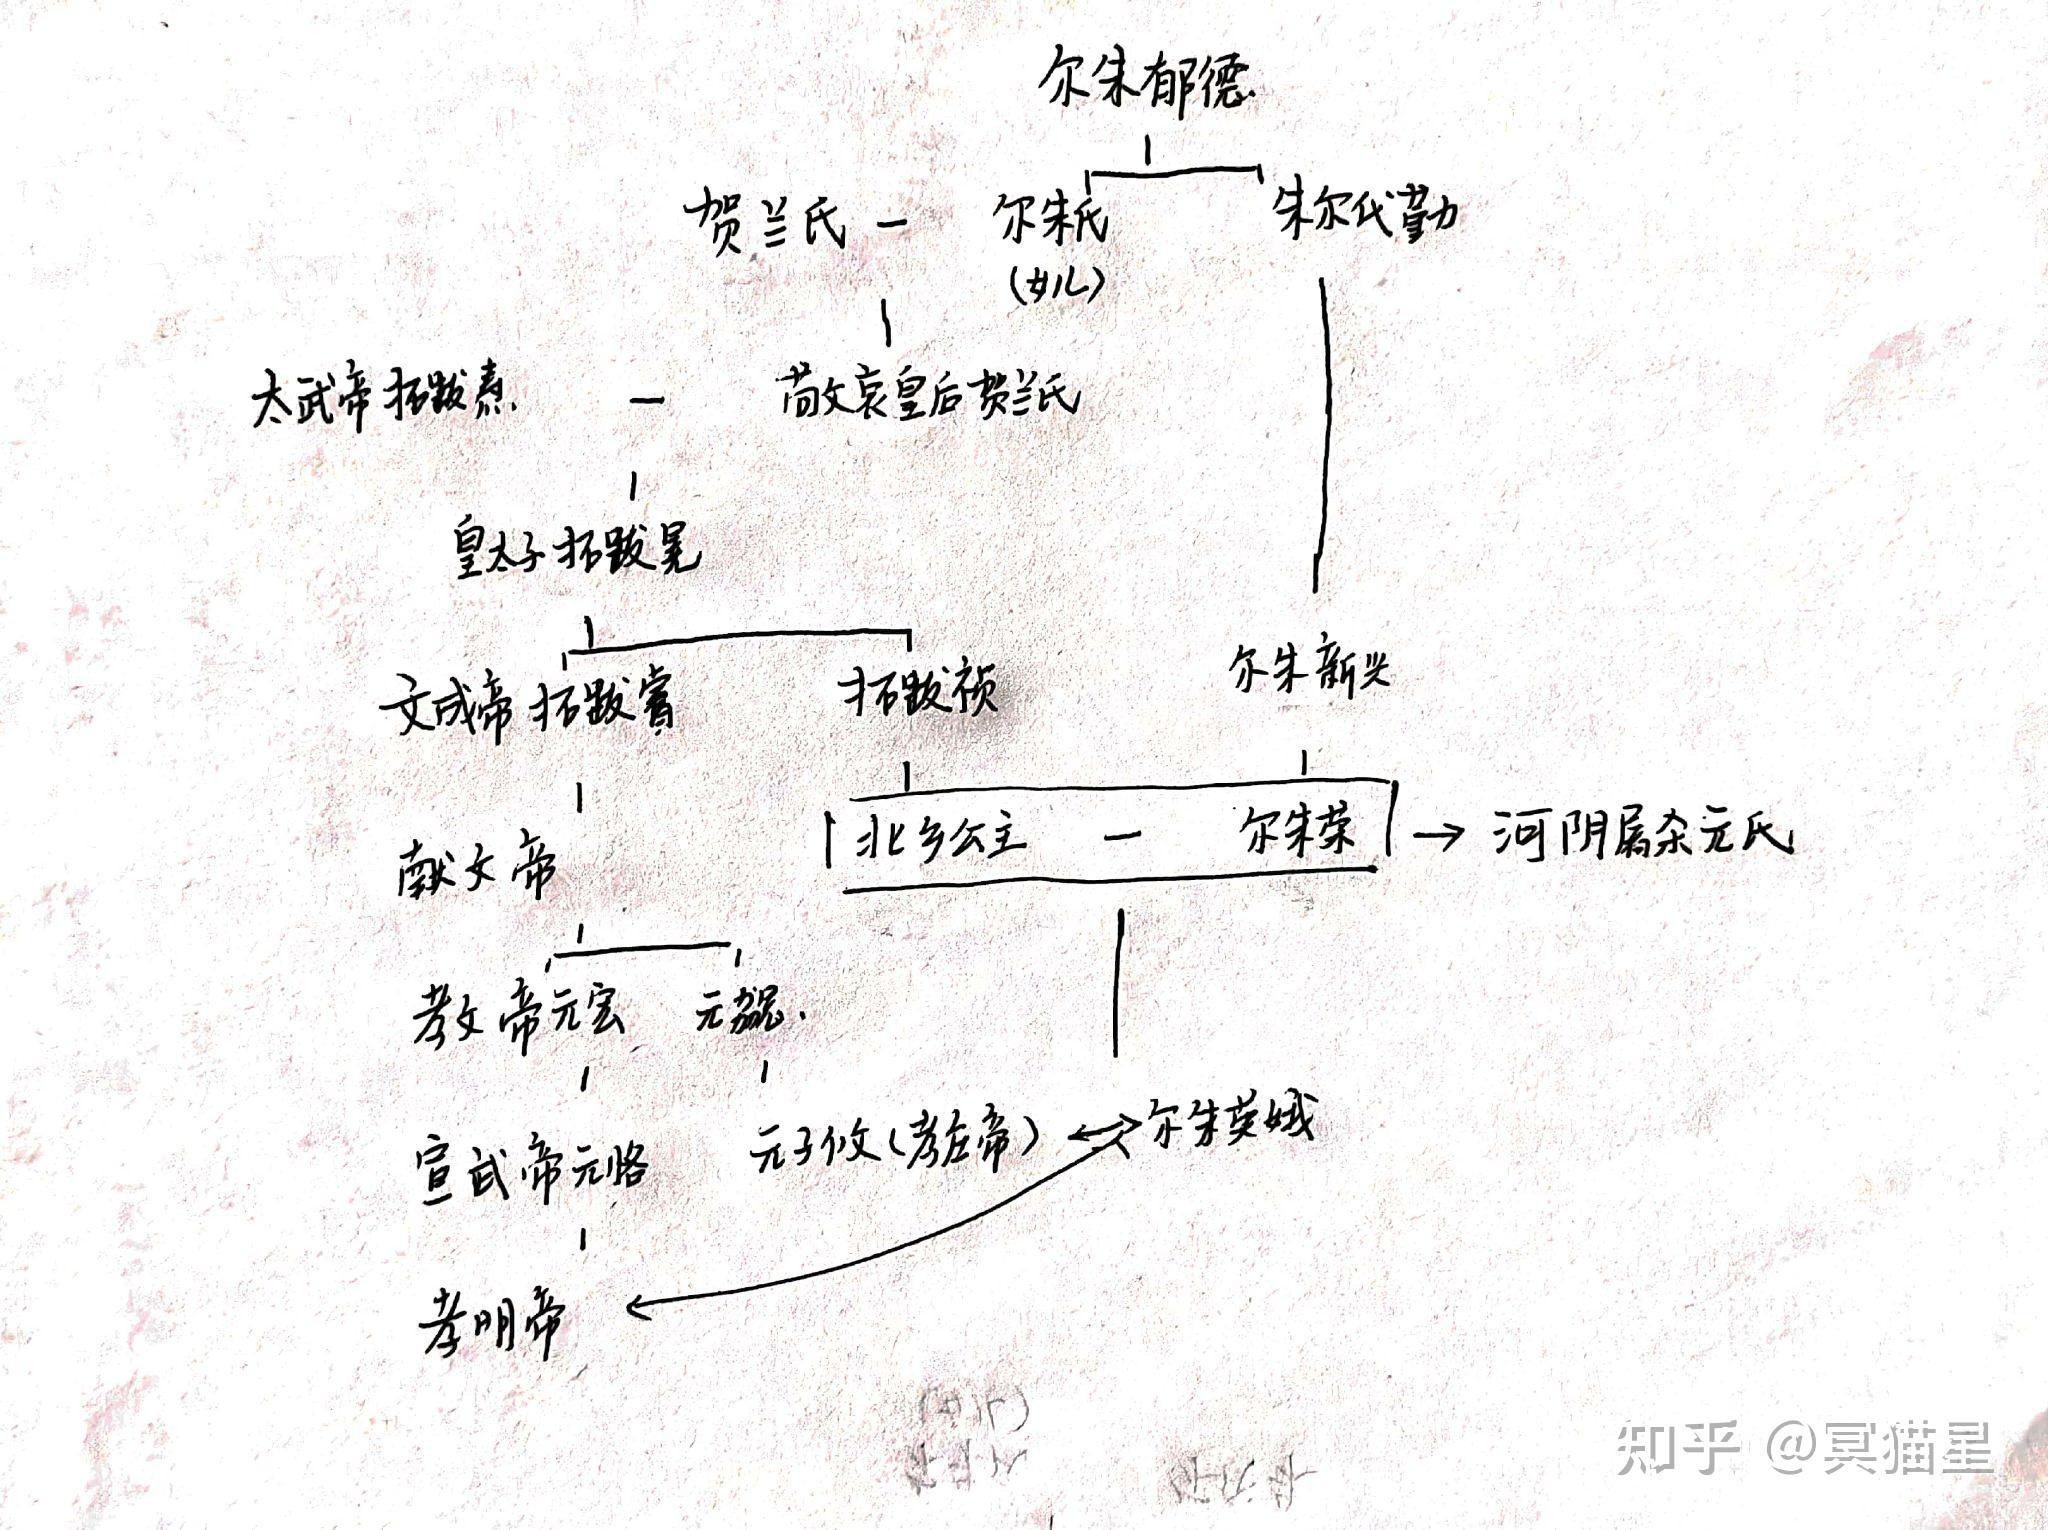 尔朱郁德
贺兰氏 — 尔朱氏 朱尔代勤
(女儿)
太武帝拓跋焘 — 敬哀皇后贺兰氏
皇太子拓跋晃
文成帝拓跋濬 拓跋祯 尔朱新兴
献文帝 北乡公主 — 尔朱荣 → 河阴屠杀元氏
孝文帝元宏 元勰
宣武帝元恪 元子攸(孝庄帝) 尔朱英娥
孝明帝
知乎 @冥猫星